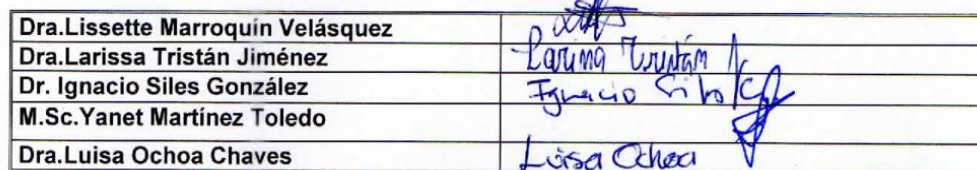 Dra.Lissette Marroquín Velásquez
Dra.Larissa Tristán Jiménez Larissa Tristán J
Dr. Ignacio Siles González Ignacio Siles
M.Sc.Yanet Martínez Toledo
Dra.Luisa Ochoa Chaves Luisa Ochoa